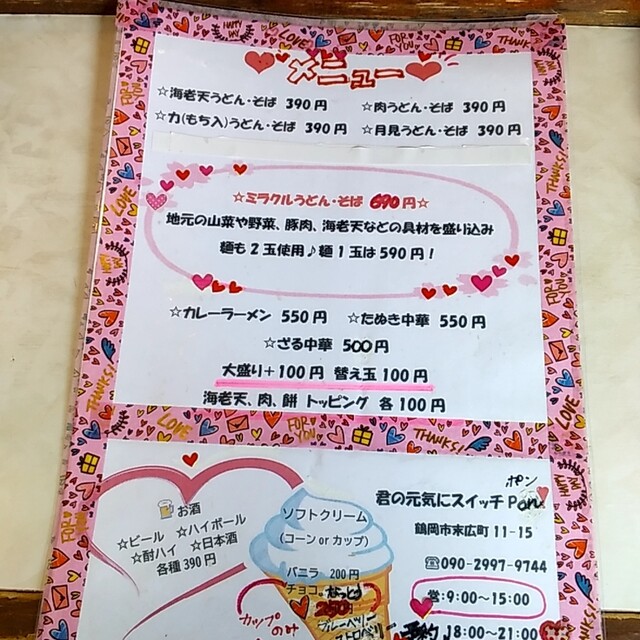 メニュー
☆海老天うどん・そば 390円 ☆肉うどん・そば 390円
☆力(もち入)うどん・そば 390円 ☆月見うどん・そば 390円
☆ミラクルうどん・そば 690円☆
地元の山菜や野菜、豚肉、海老天などの具材を盛り込み
麺も2玉使用♪麺1玉は590円!
☆カレーラーメン 550円 ☆たぬき中華 550円
☆ざる中華 500円
大盛り+100円 替え玉100円
海老天、肉、餅 トッピング 各100円
お酒
☆ビール ☆ハイボール
☆酎ハイ ☆日本酒
各種390円
ソフトクリーム
(コーン or カップ)
バニラ 200円
チョコ
250円
ブルーベリー
ストロベリー
カップ
のみ
ポン
君の元気にスイッチPon
鶴岡市末広町11-15
☎090-2997-9744
営:9:00~15:00
予約 18:00~21:00
HAPPY DAY
LOVE
FOR YOU
THANKS!